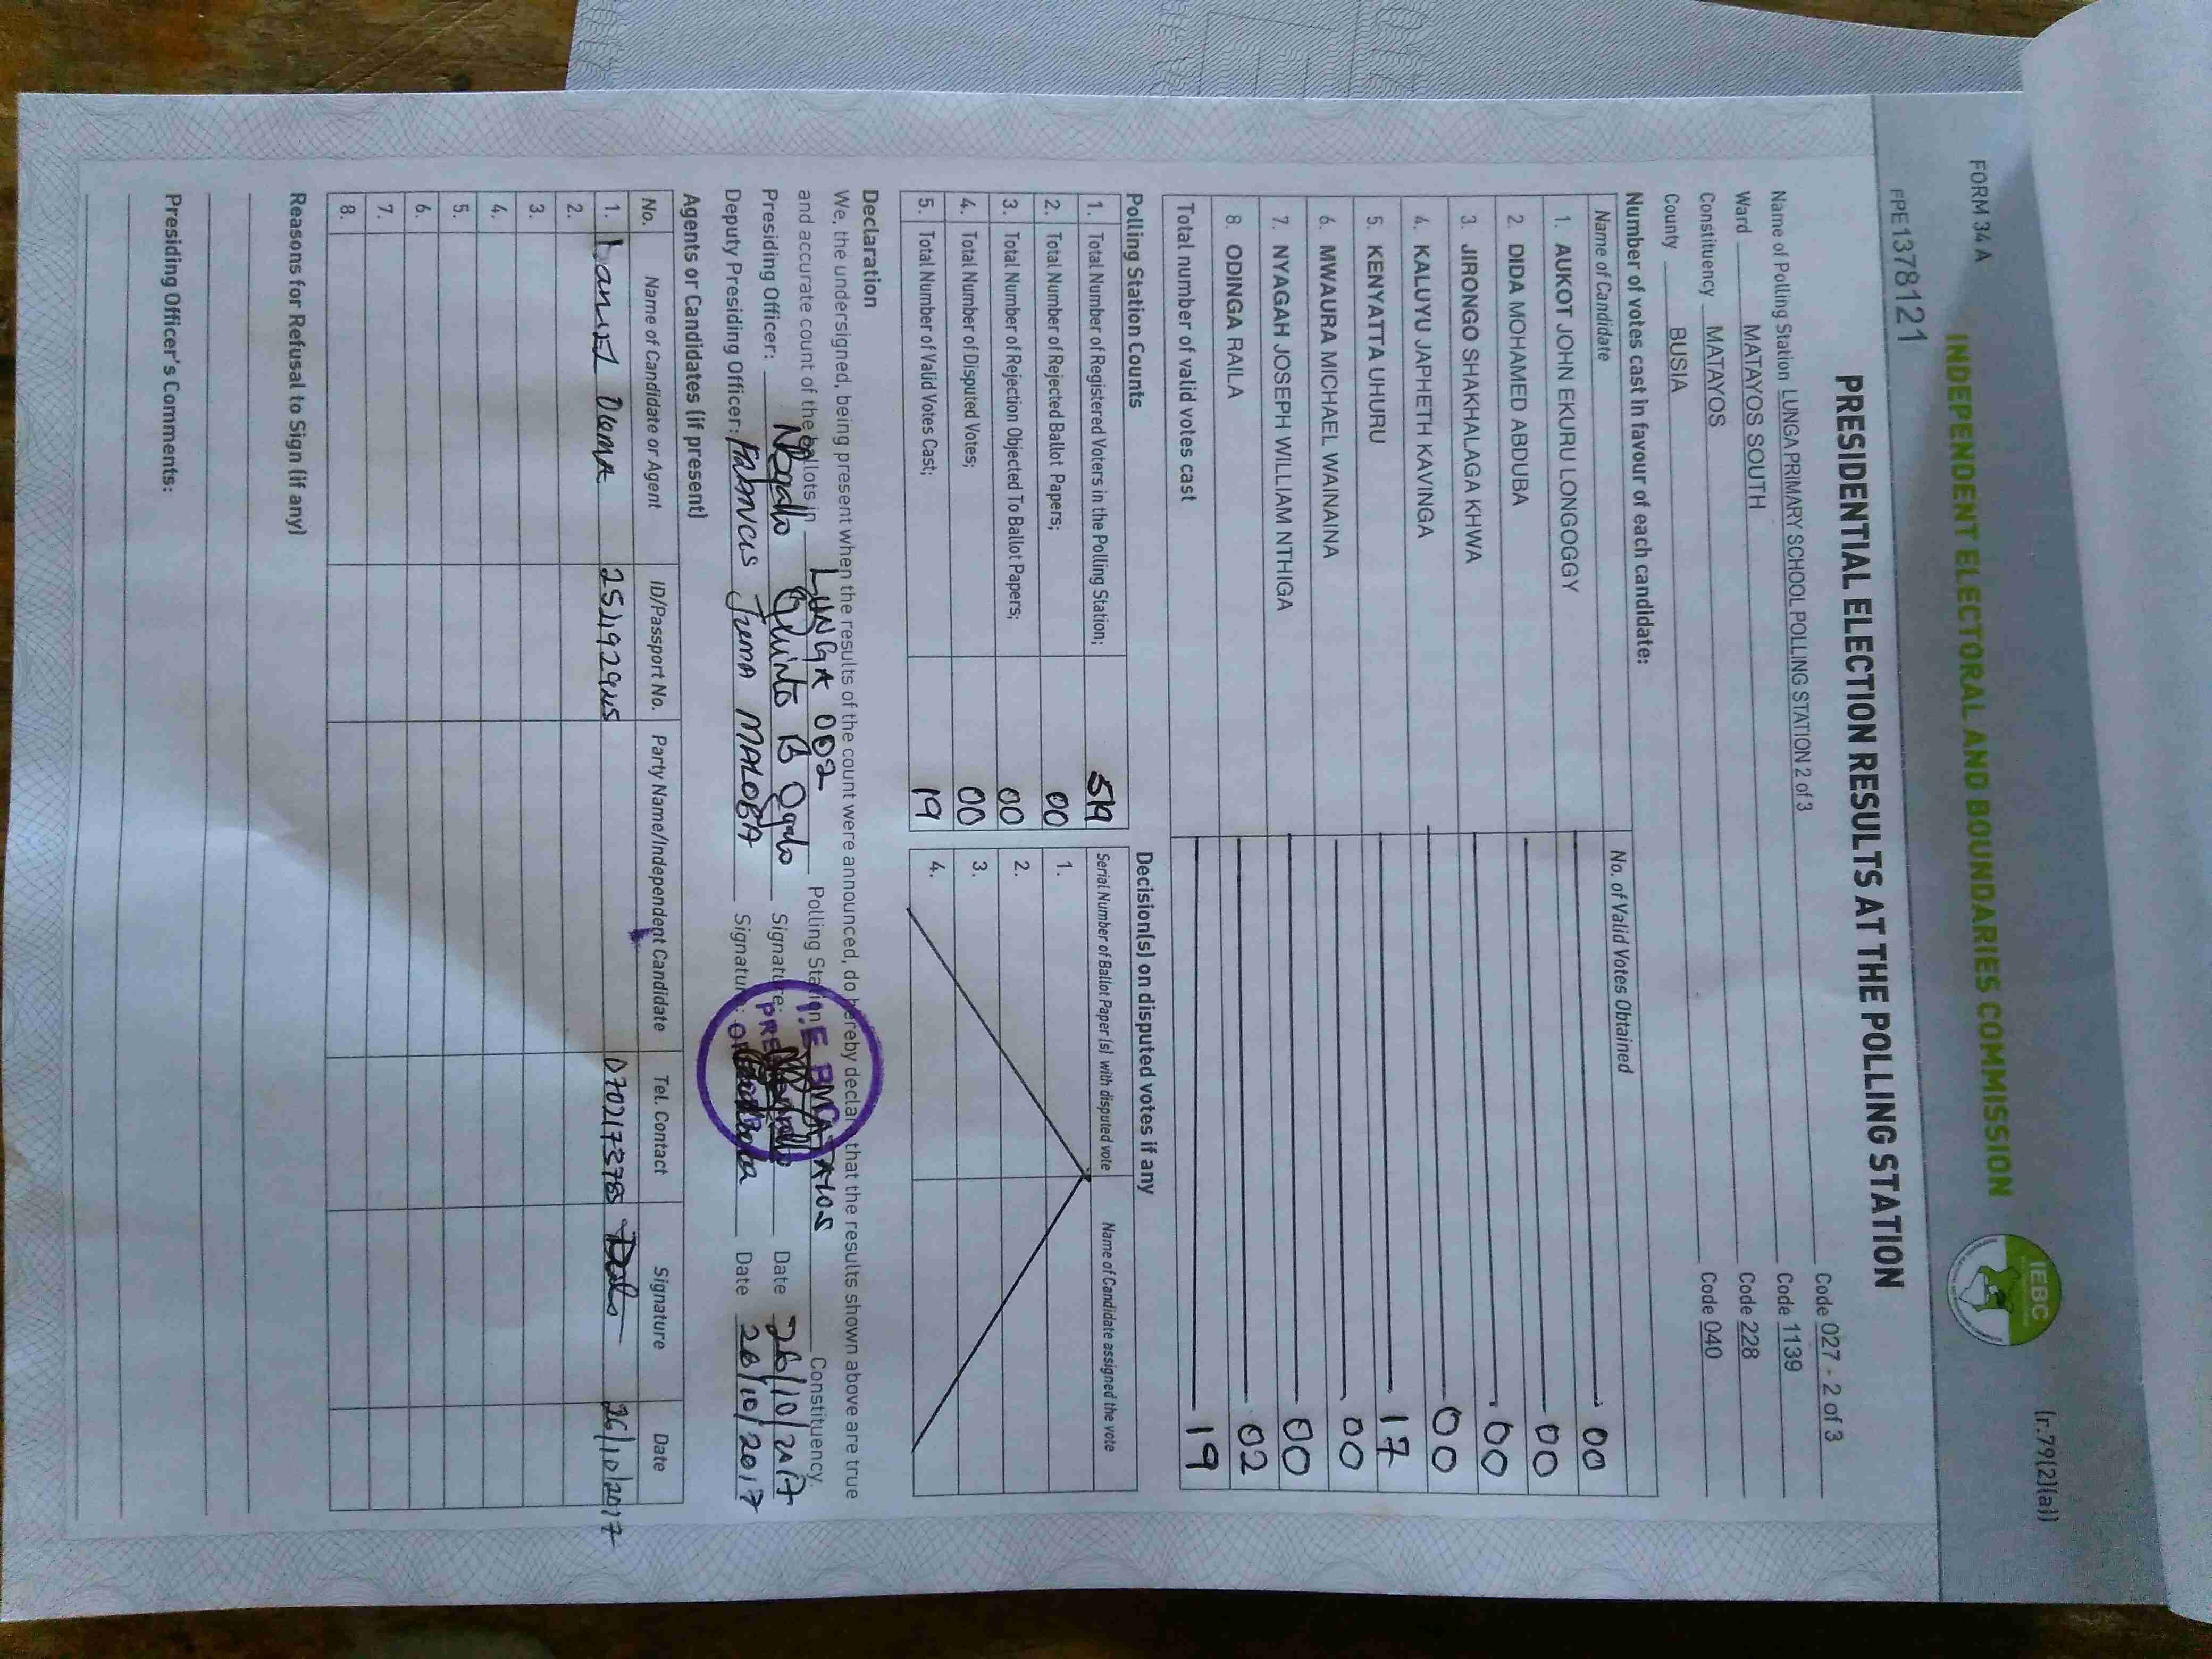 FORM 34 A
(r.79(2)(a))
INDEPENDENT ELECTORAL AND BOUNDARIES COMMISSION
IEBC
FPE1378121
PRESIDENTIAL ELECTION RESULTS AT THE POLLING STATION
Name of Polling Station LUNGA PRIMARY SCHOOL POLLING STATION 2 of 3 Code 027 - 2 of 3
Ward MATAYOS SOUTH Code 1139
Constituency MATAYOS Code 228
County BUSIA Code 040
Number of votes cast in favour of each candidate:
Name of Candidate No. of Valid Votes Obtained
1. AUKOT JOHN EKURU LONGOGGY 00
2. DIDA MOHAMED ABDUBA 00
3. JIRONGO SHAKHALAGA KHWA 00
4. KALUYU JAPHETH KAVINGA 00
5. KENYATTA UHURU 17
6. MWAURA MICHAEL WAINAINA 00
7. NYAGAH JOSEPH WILLIAM NTHIGA 00
8. ODINGA RAILA 02
Total number of valid votes cast 19
Polling Station Counts
1. Total Number of Registered Voters in the Polling Station;
2. Total Number of Rejected Ballot Papers; 00
3. Total Number of Rejection Objected To Ballot Papers; 00
4. Total Number of Disputed Votes; 00
5. Total Number of Valid Votes Cast; 19
Decision(s) on disputed votes if any
Serial Number of Ballot Paper (s) with disputed vote Name of Candidate assigned the vote
1.
2.
3.
4.
Declaration
We, the undersigned, being present when the results of the count were announced, do hereby declare that the results shown above are true
and accurate count of the ballots in LUNGA 002 Polling Station MATAYOS Constituency.
Presiding Officer: B Ogalo Signature: Date 26/10/2017
Deputy Presiding Officer: FRANCIS JUMA MALOBA Signature: Date 26/10/2017
Agents or Candidates (if present)
No. Name of Candidate or Agent ID/Passport No. Party Name/Independent Candidate Tel. Contact Signature Date
1. 0702173785 26/10/2017
2.
3.
4.
5.
6.
7.
8.
Reasons for Refusal to Sign (if any)
Presiding Officer's Comments: